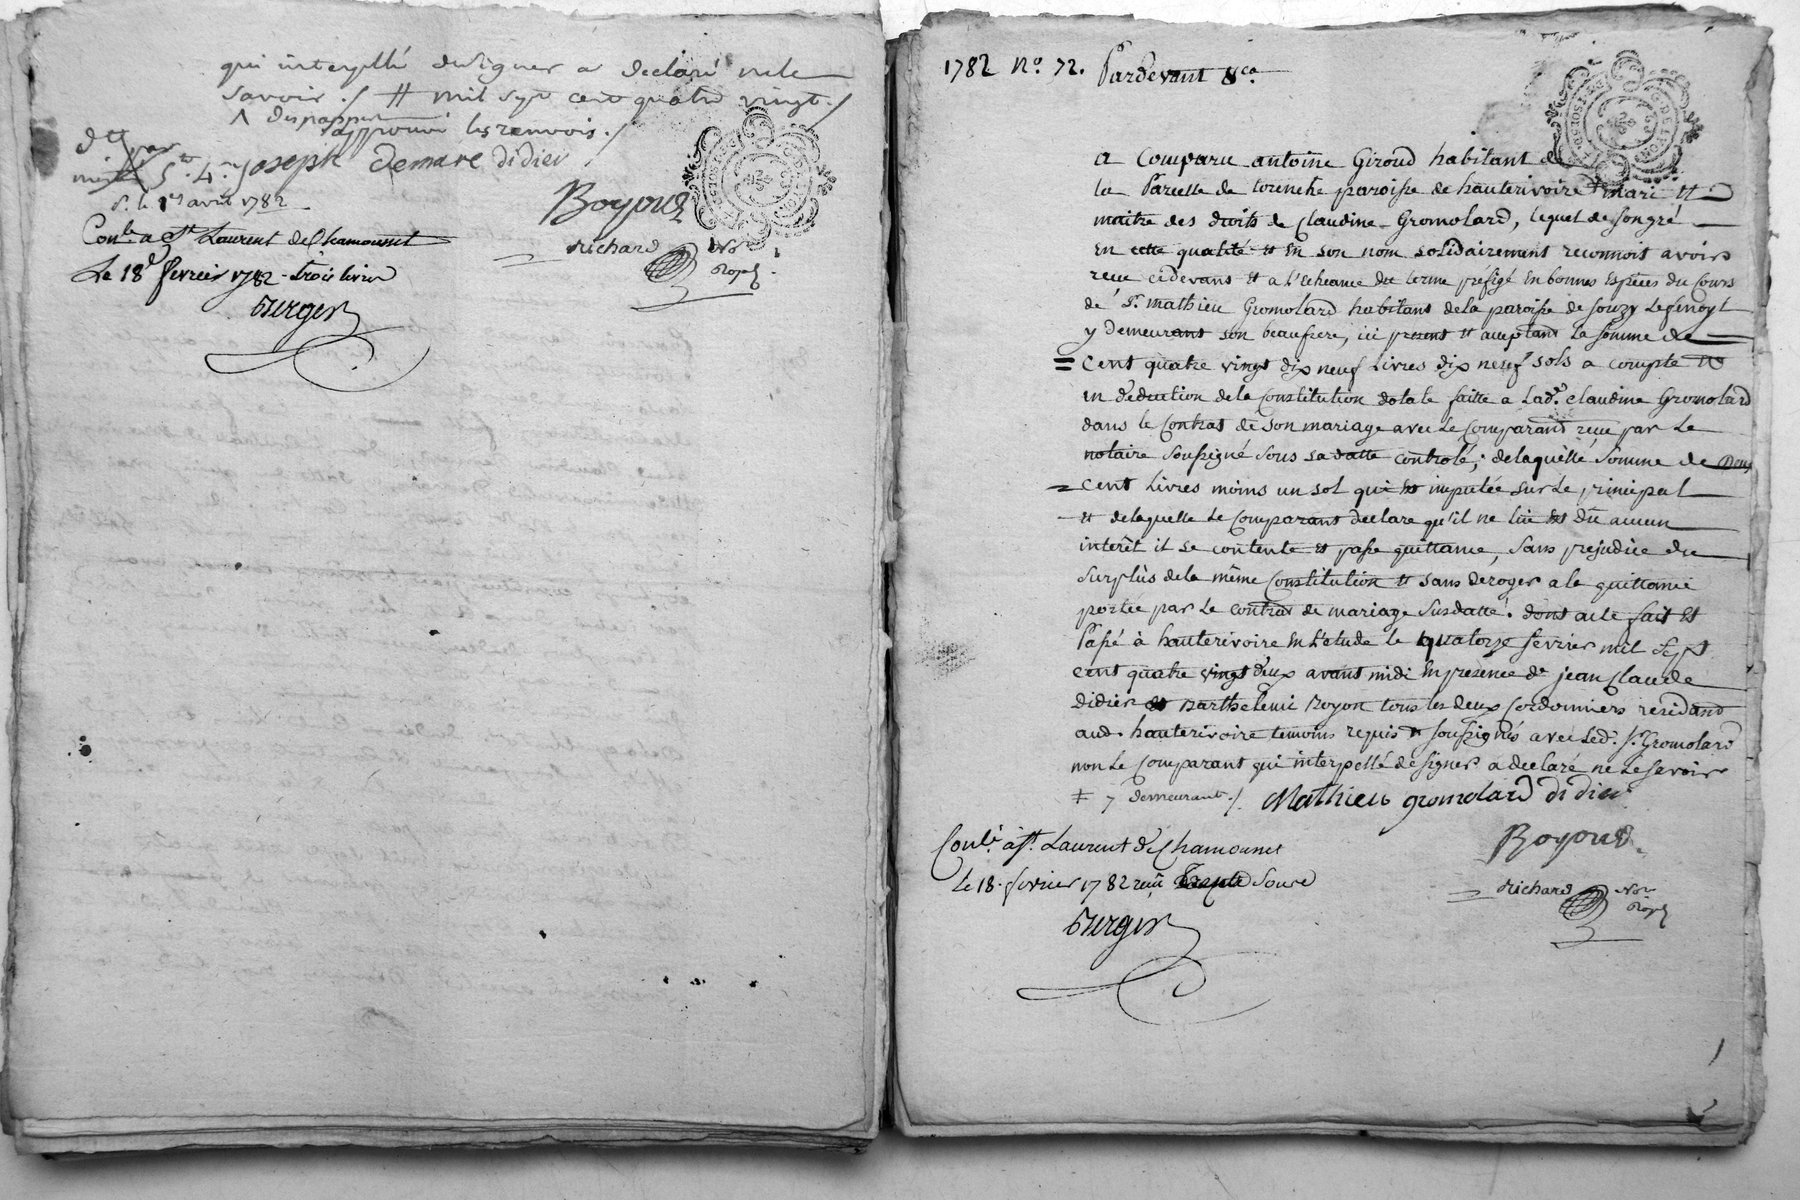 qui interpellé de signer a declaré ne le
savoir ./ # mil sept cent quatre vingt ./
approuvé les renvois ./
joseph demare didier
s. le 1er avril 1782
Boyoud
Conlé a St Laurent de Chamousset
richard Nore
Royal
Le 18e fevrier 1782 - trois livres
Berger
1782 No. 72. Pardevant &ca.
a Comparu antoine Giroud habitant de
la Parcelle de torenche paroisse de hauterivoire ‡ mari et
maitre des droits de Claudine Gromolard, lequel de son gré
en cette qualité et en son nom solidairement reconnois avoir
recu cidevans et a l'echeance du terme prefigé en bonnes Espéces du Cours
de Sr. mathieu Gromolard habitans de la paroisse de Souzy
y demeurans son beaufrere, ici present et acceptant la somme de
= Cent quatre vingt dix neuf Livres dix neuf sols a compte et
en deduction de la Constitution dotale faitte a Lade. Claudine Gromolard
dans le Contrat de son mariage avec le Comparant recu par Le
notaire soussigné sous sa datte controlé; de laquelle somme de Deux
= Cent Livres moins un sol qui est imputée sur Le principal
et de laquelle Le Comparant declare qu'il ne lui est dû aucun
interêt il se contente et passe quittance, sans prejudice du
surplùs de la même Constitution et sans deroger a la quittance
portée par Le contrat de mariage susdatté. dont acte fait et
Passé à hauterivoire en L'etude le quatorze fevrier mil sept
cent quatre vingt deux avant midi en presence de jean Claude
didier et Barthelemi Boyon tous les deux Cordonniers residant
aud. hauterivoire temoins requis et soussignés avec Led. Sr. Gromolard
non Le Comparant qui interpellé de signer a declaré ne Le savoir
‡ y demeurant ./. Mathieu gromolard didier
Conlé à St. Laurent de Chamousset
Boyoud
le 18. fevrier 1782 recu
richard Nore
Royal
Berger